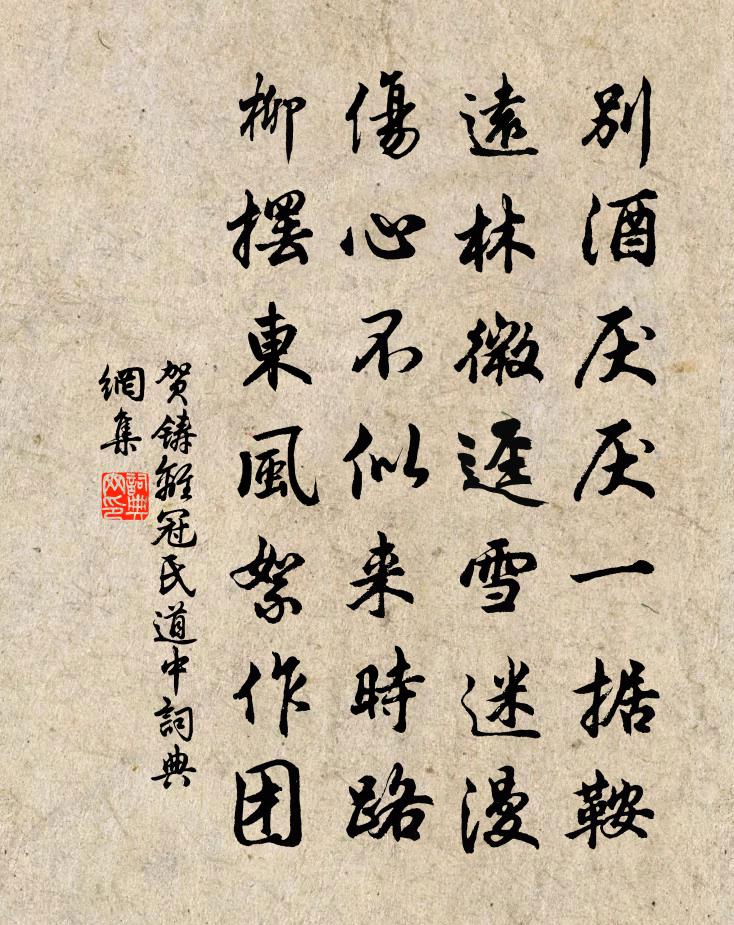 別酒厌厌一据鞍
遠林微逕雪迷漫
傷心不似来時路
柳摆東風絮作团
贺鋳離冠氏道中詞典
網集
詞典
网印